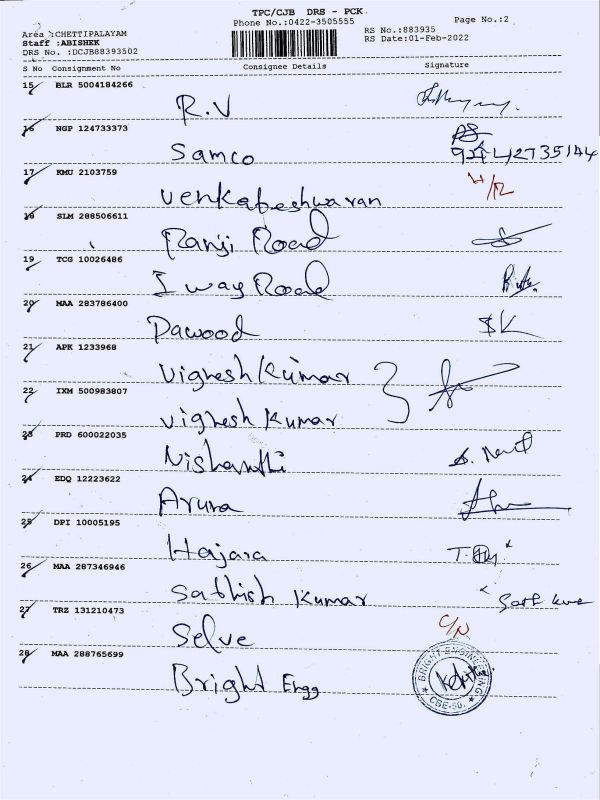 TPC/CJB DRS - PCK
Phone No.:0422-3505555
Page No.:2
Area :CHETTIPALAYAM
Staff :ABISHEK
DRS No. :DCJB88393502
RS No.:883935
RS Date:01-Feb-2022
S No Consignment No Consignee Details Signature
15 BLR 5004184266
R.V
16 NGP 124733373
Samco
17 KMU 2103759
Venkateshwaran
18 SLM 288506611
Ranji Road
19 TCG 10026486
I way Road
20 MAA 283786400
Dawood
SK
21 APK 1233968
Vignesh Kumar
22 IXM 500983807
Vignesh Kumar
23 PRD 600022035
Nishanthi
24 EDQ 12223622
Aruna
25 DPI 10005195
Hajara
26 MAA 287346946
Sathish Kumar
27 TRZ 131210473
Selve
C/N
28 MAA 288765699
Bright Engg
BRIGHT ENGINEERING
CBE-50.